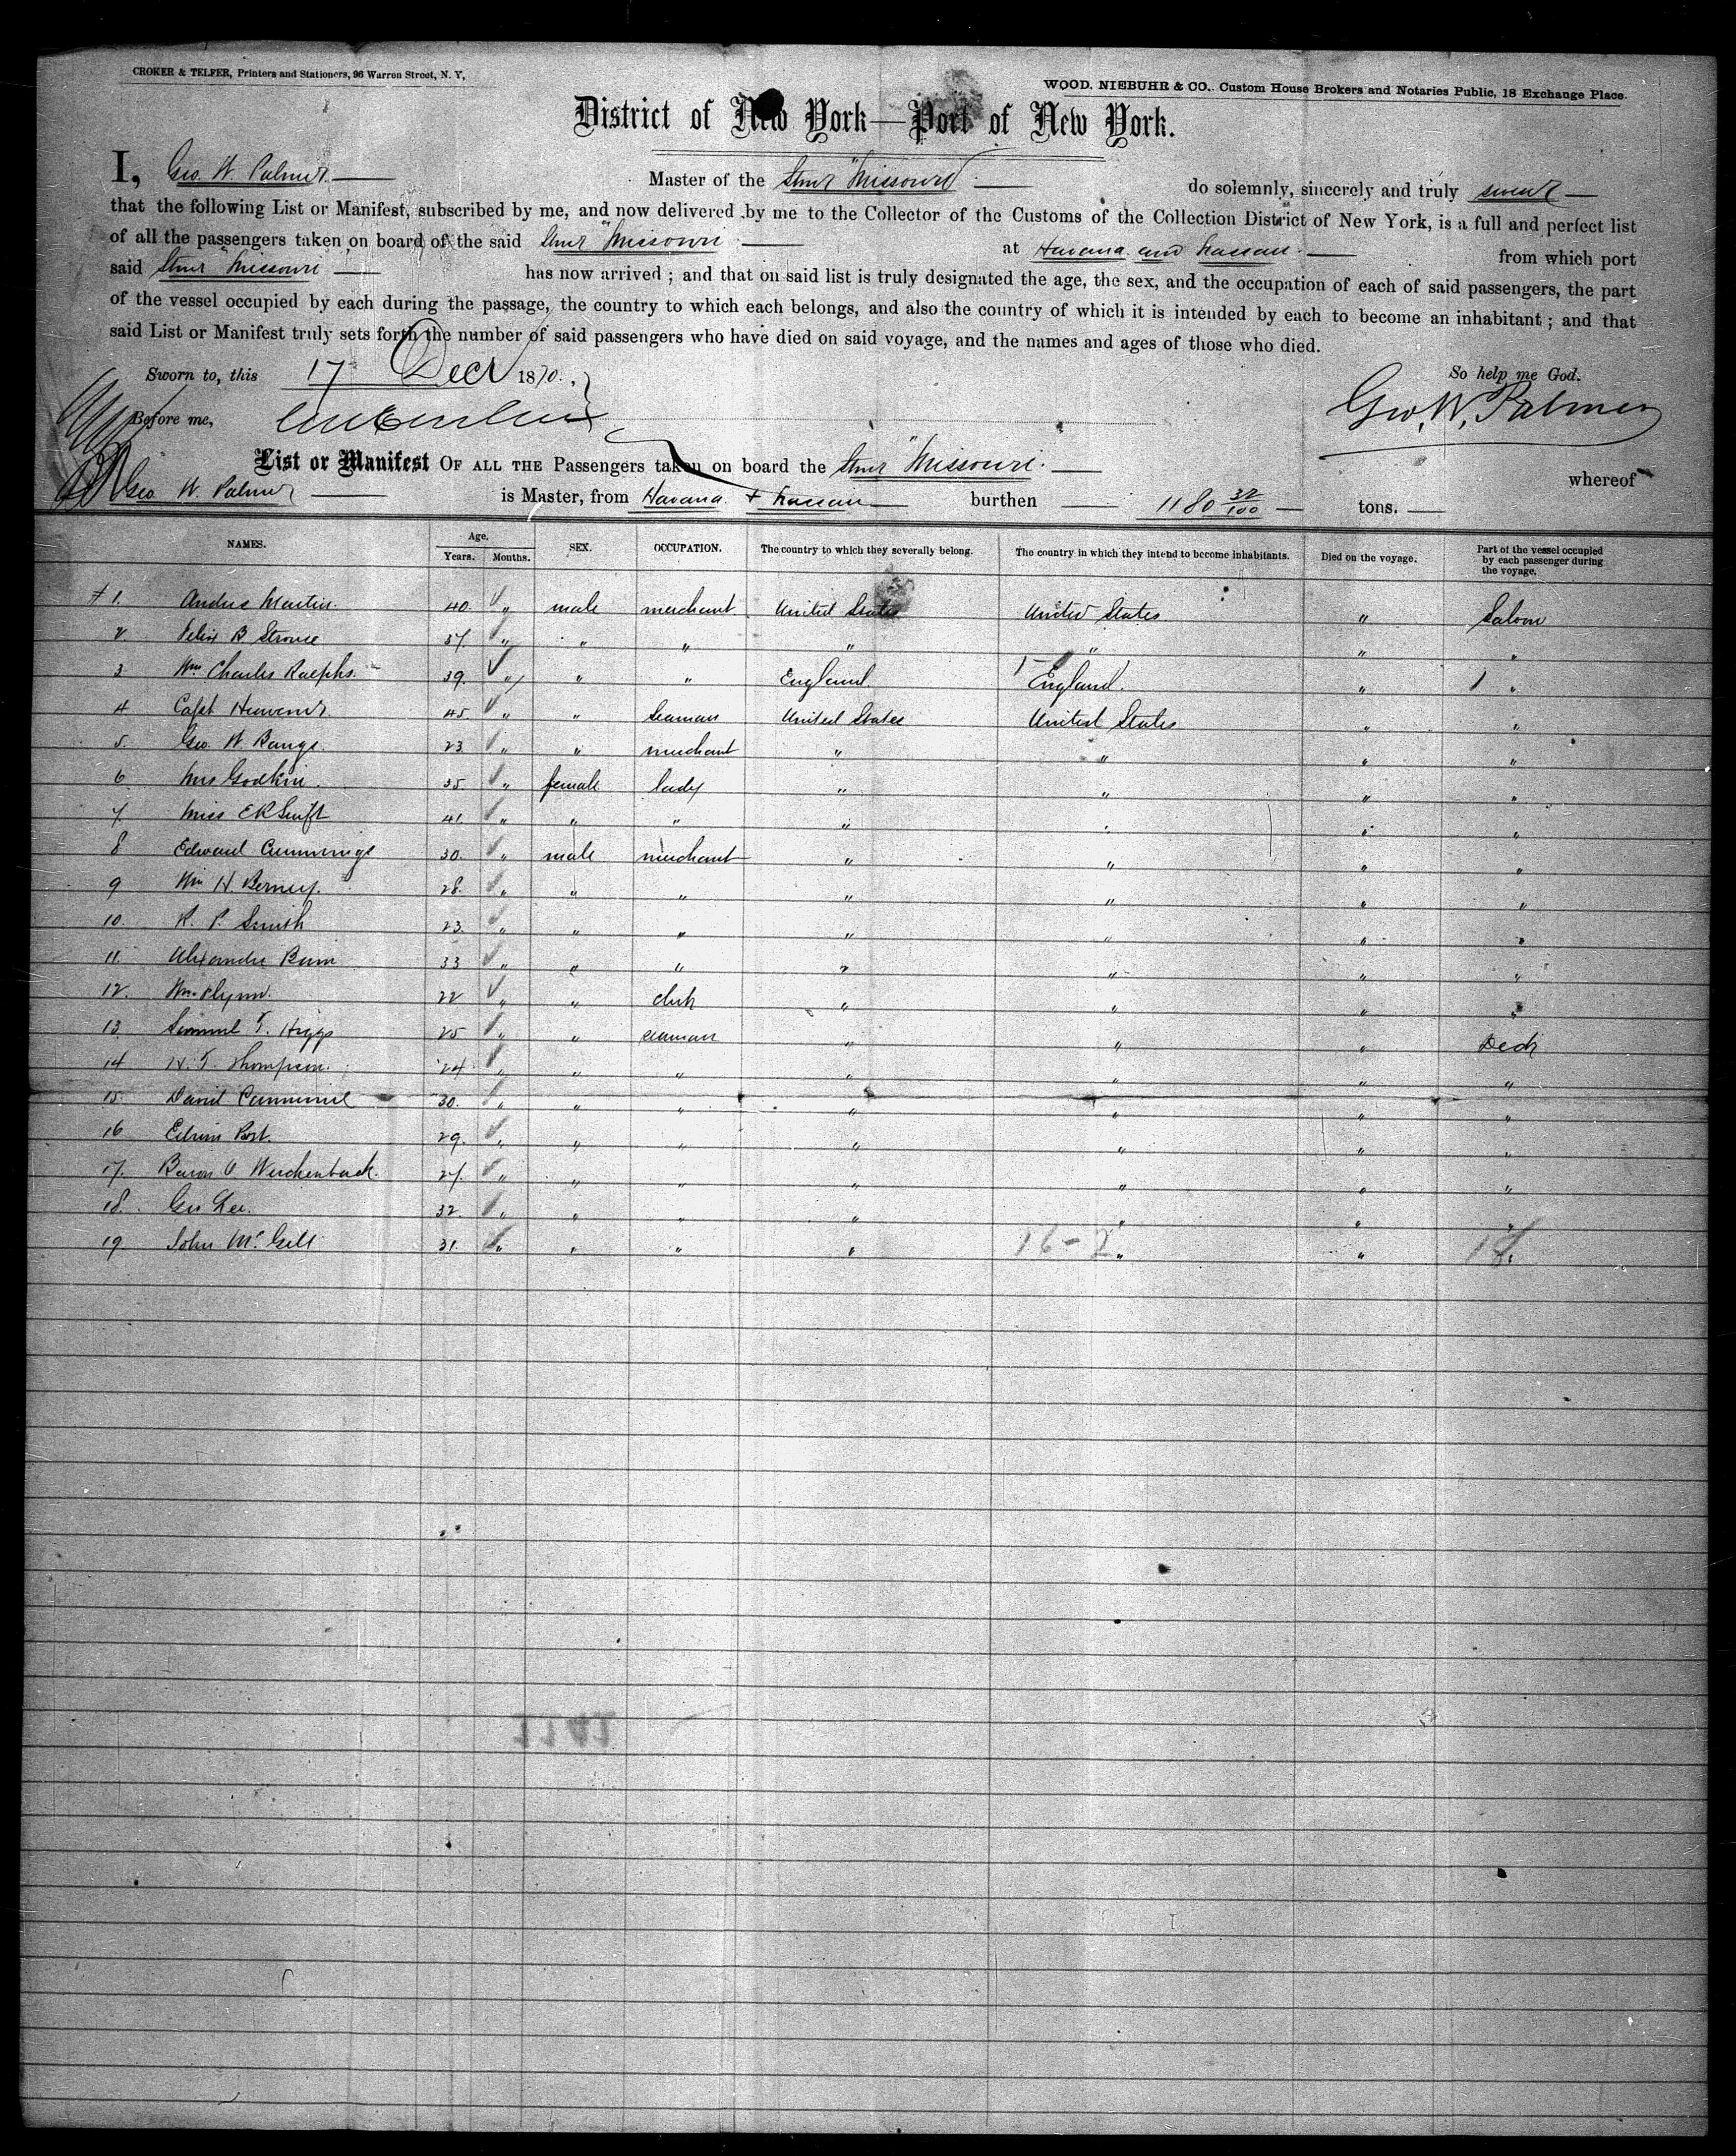 CROKER & TELFER, Printers and Stationers, 96 Warren Street, N. Y.
WOOD, NIEBUHR & CO., Custom House Brokers and Notaries Public, 18 Exchange Place.
District of New York—Port of New York.
I, Geo. W. Palmer Master of the Stmr "Missouri" do solemnly, sincerely and truly swear
that the following List or Manifest, subscribed by me, and now delivered by me to the Collector of the Customs of the Collection District of New York, is a full and perfect list
of all the passengers taken on board of the said Stmr "Missouri at Havana and Nassau from which port
said Stmr "Missouri has now arrived; and that on said list is truly designated the age, the sex, and the occupation of each of said passengers, the part
of the vessel occupied by each during the passage, the country to which each belongs, and also the country of which it is intended by each to become an inhabitant; and that
said List or Manifest truly sets forth the number of said passengers who have died on said voyage, and the names and ages of those who died.
Sworn to, this 17 Decr 1870. So help me God.
Before me, Geo. W. Palmer
List or Manifest OF ALL THE Passengers taken on board the Stmr "Missouri" whereof
Geo W. Palmer is Master, from Havana & Nassau burthen 1180 32/100 tons.
NAMES. Age. Years. Months. SEX. OCCUPATION. The country to which they severally belong. The country in which they intend to become inhabitants. Died on the voyage. Part of the vessel occupied by each passenger during the voyage.
1. Andus Martin. 40. " male merchant United States United States " Saloon
2 Felix B 37. " " " " " " "
3 Wm Charles Raephs. 39. " " " England England. " "
4 Capt 45 " " Seaman United States United States " "
5. Geo. W Bangs. 23 " " merchant " " " "
6 Mrs Godkin. 35. " female lady " " " "
7. Miss E R Swift 41. " " " " " " "
8 Edward Cummings 30. " male merchant " " " "
9 Wm H Berney. 28. " " " " " " "
10. R. P. Smith 23. " " " " " " "
11. Alexander 33 " " " " " " "
12. Wm Flynn. 22 " " clerk " " " "
13. Samuel T. Higgs 25 " " seaman " " " Deck
14 H. T. Thompson. 24 " " " " " " "
15. David 30. " " " " " " "
16 Edwin Post. 29. " " " " " " "
17. Baron 27. " " " " " " "
18. Geo Lee. 32. " " " " " " "
19. John Mc Gill 31. " " " " 16-2 " " "